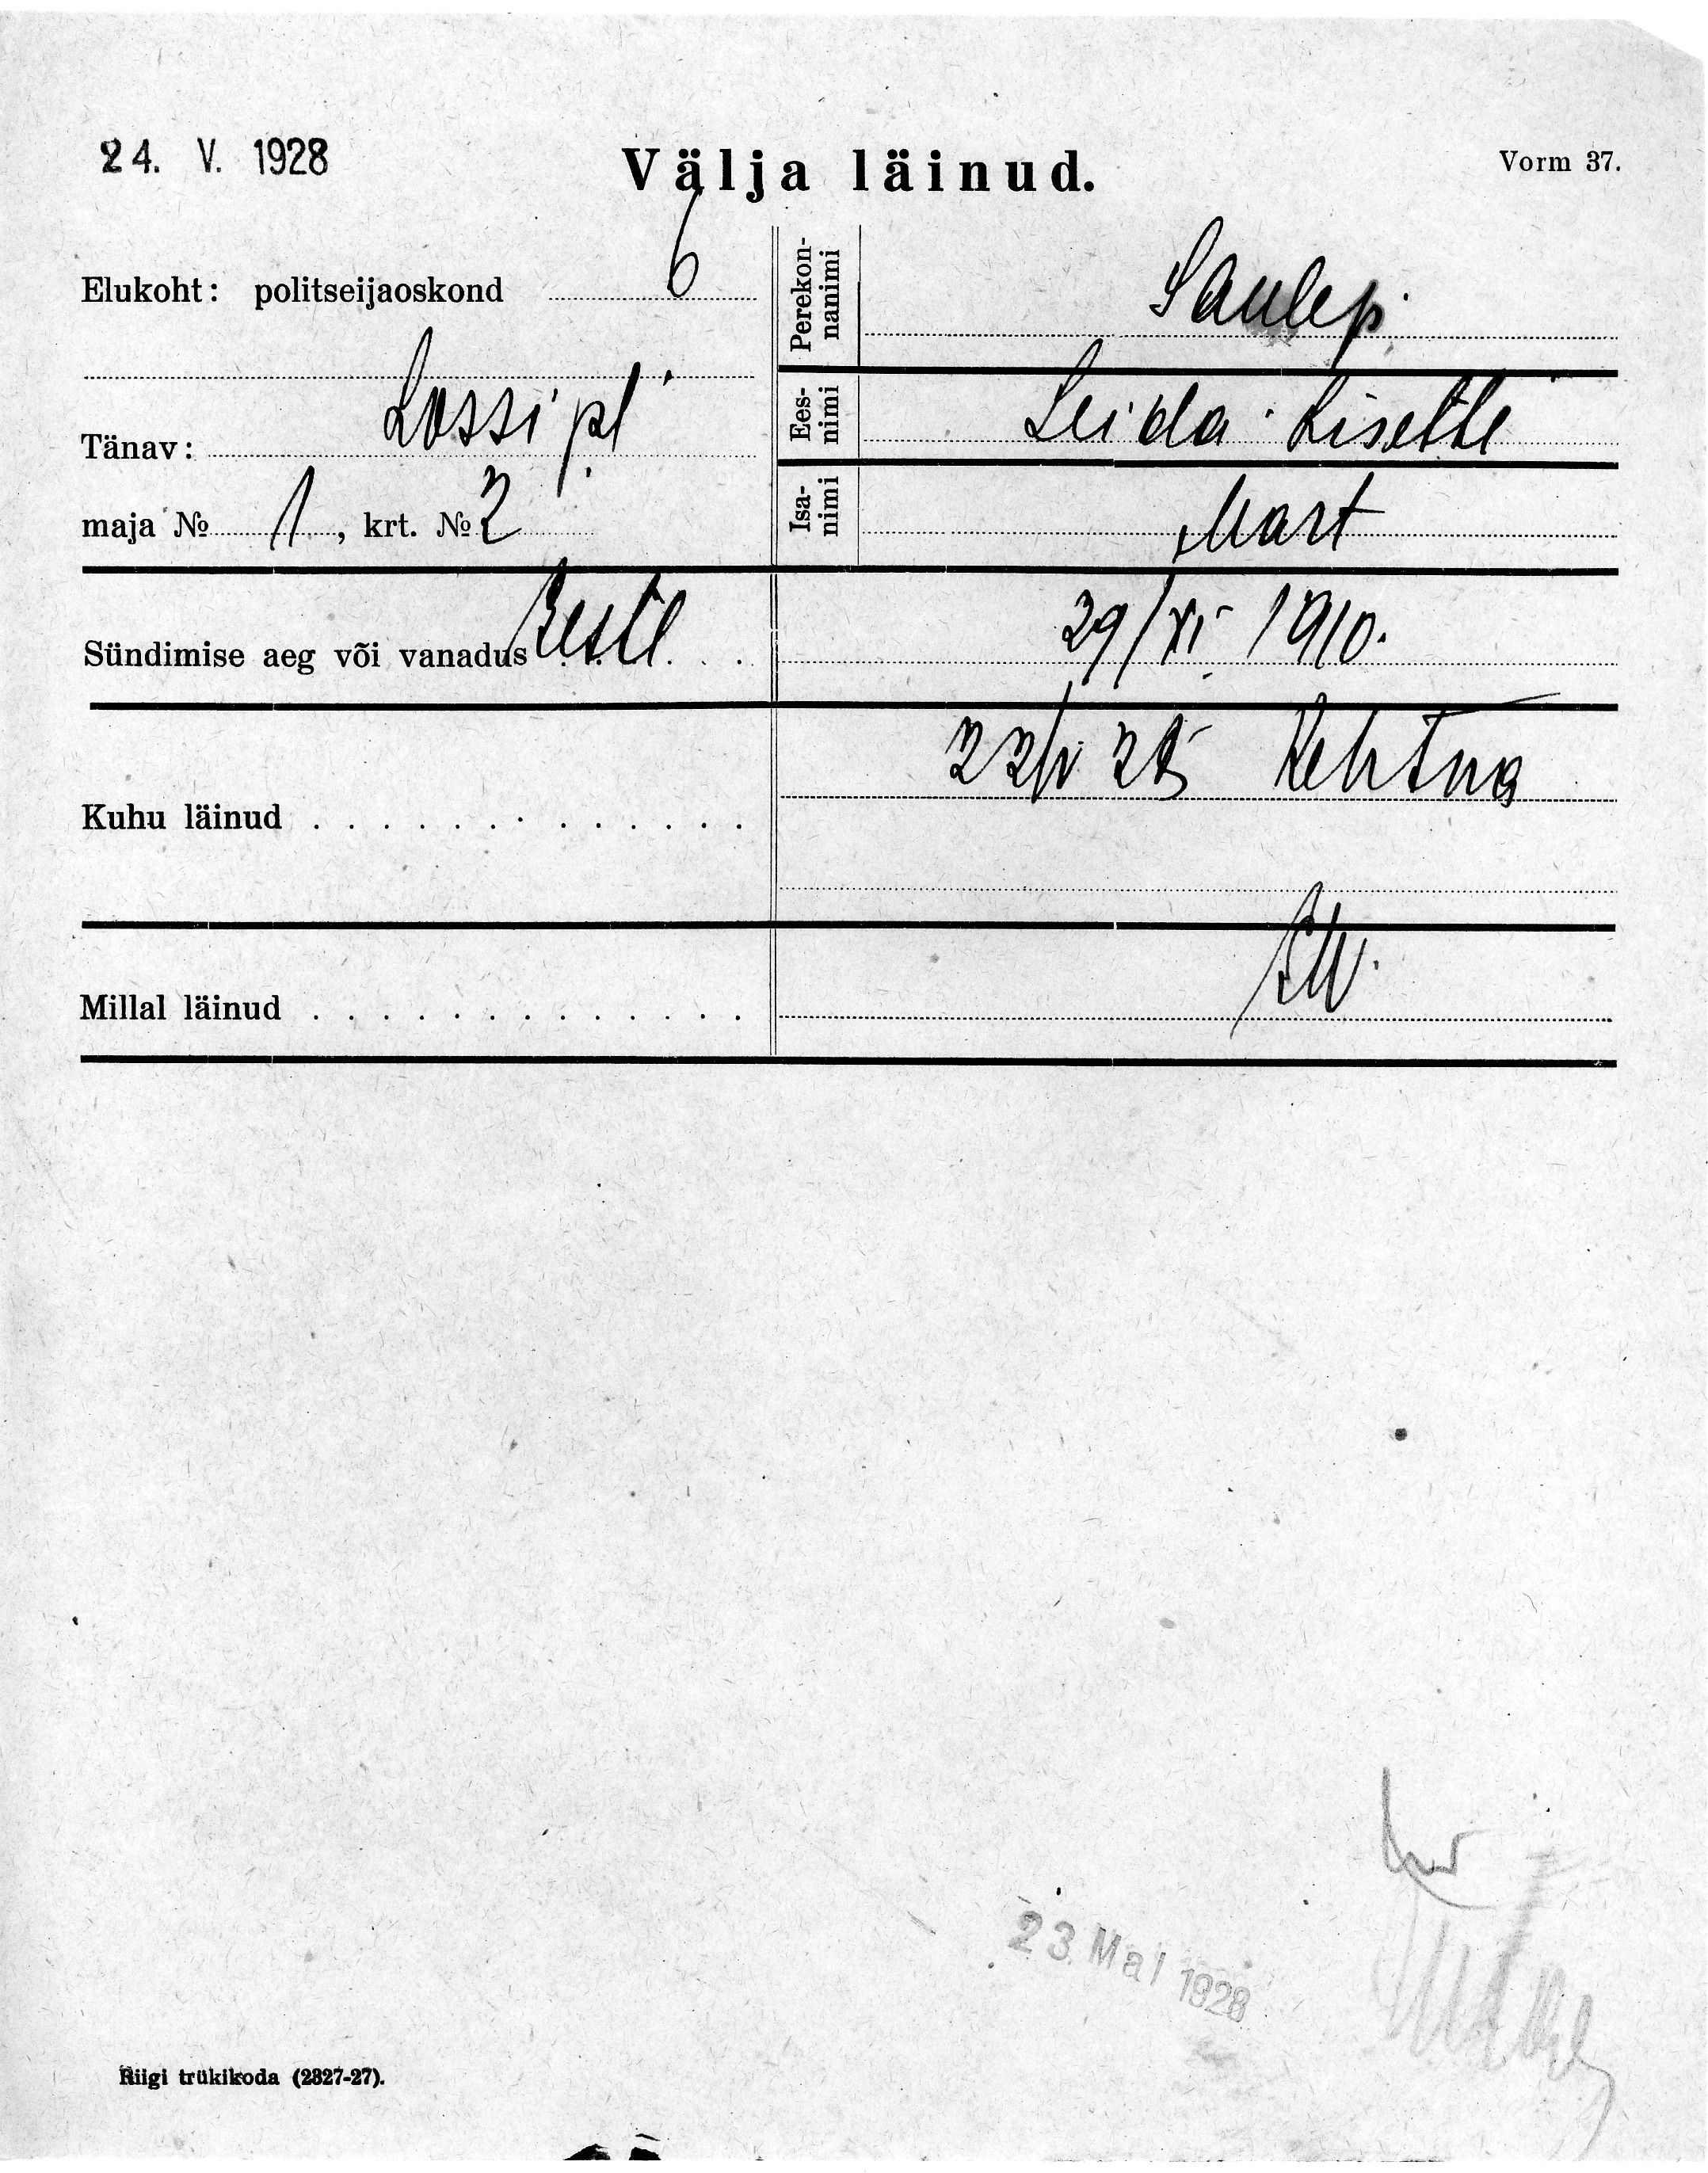 24. V. 1928
Välja läinud.
Vorm 37.
Elukoht: politseijaoskond 6
Tänav: Lossi pl
maja № 1, krt. № 2
Perekon-
nanimi
Saulep
Ees-
nimi
Leida Lisette
Isa-
nimi
Mart
Sündimise aeg või vanadus Eestl . .
29/XI 1910.
Kuhu läinud . . . . . . . . . . . . .
22/V 28 Kehtna
Millal läinud . . . . . . . . . . . . .
23. Mai 1928
Riigi trükikoda (2327-27).